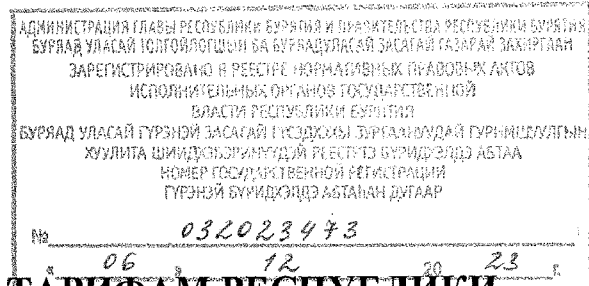 АДМИНИСТРАЦИЯ ГЛАВЫ РЕСПУБЛИКИ БУРЯТИЯ И ПРАВИТЕЛЬСТВА РЕСПУБЛИКИ БУРЯТИЯ
БУРЯАД УЛАСАЙ ТОЛГОЙЛОГШЫН БА БУРЯАД УЛАСАЙ ЗАСАГАЙ ГАЗАРАЙ ЗАХИРГААН
ЗАРЕГИСТРИРОВАНО В РЕЕСТРЕ НОРМАТИВНЫХ ПРАВОВЫХ АКТОВ
ИСПОЛНИТЕЛЬНЫХ ОРГАНОВ ГОСУДАРСТВЕННОЙ
ВЛАСТИ РЕСПУБЛИКИ БУРЯТИЯ
БУРЯАД УЛАСАЙ ГҮРЭНЭЙ ЗАСАГАЙ ГҮЙСЭДХЭХЫ ЗУРГААНУУДАЙ
ХУУЛИТА ШИИДХЭБЭРИНҮҮДЭЙ РЕЕСТРТЭ БҮРИДХЭЛДЭ АБТАА
НОМЕР ГОСУДАРСТВЕННОЙ РЕГИСТРАЦИИ
ГҮРЭНЭЙ БҮРИДХЭЛДЭ АБТАҺАН ДУГААР
№ 032023473
« 06 » 12 20 23 г.
ТАРИФАМ РЕСПУБЛИКИ